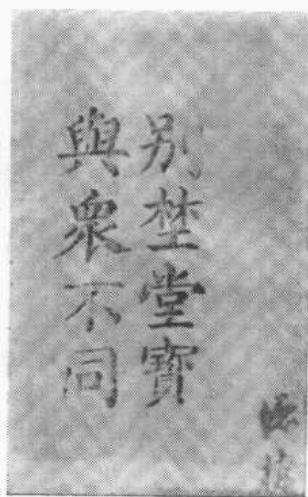 別埜堂寶
與衆不同